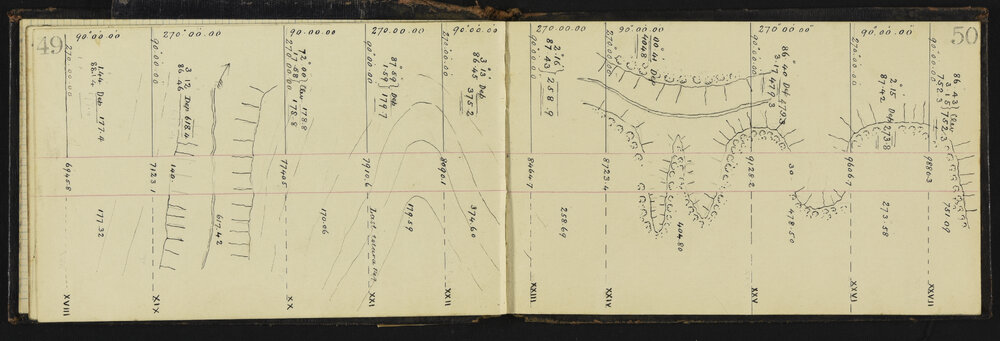 49
90°00.00
270.00.00
1.44 Dep 177.4
88.14
6945.8
177.32
XVIII
270°00.00
90°00.00
3.12 Dep 618.4
86.46
7123.1
140
617.42
XIX
90.00.00
270°00.00
72°00
17.58
Elev 178.8
178.8
7740.5
170.06
XX
270.00.00
90°00.00
87.59
1.59
Dep
179.7
7910.6
179.59
XXI
90°00.00
270.00.00
3.13 Dep
86.45 375.2
8090.1
374.60
XXII
270.00.00
90°00.00
2°16
87.43
258.9
8464.7
258.69
XXIII
90°00.00
270°00.00
8723.4
404.80
XXIV
270.00.00
90°00.00
86.40 Dep 479.3
3.17 479.3
9128.2
30
478.50
XXV
90.00.00
270°00.00
2°15 Dep
87.42 273.8
9606.7
273.58
XXVI
50
86.43 Elev
3.15
752.3
752.3
9880.3
751.09
XXVII